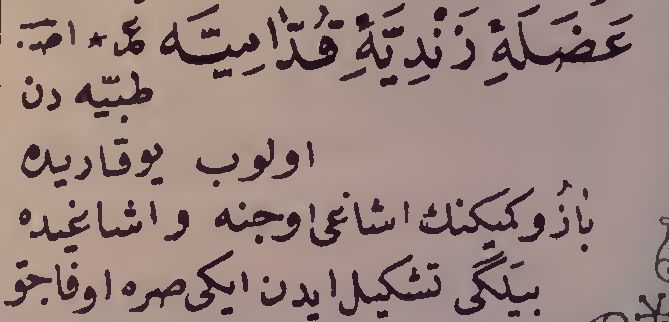 عَضَلَهٔ زَنْدِیَّهٔ قُدَّامِیَّه
طبّیه دن
اولوب یوقاریده
بازُو كمیكنك اشاغی اوجنه و اشاغیده
بیلگی تشكیل ایدن ایكی صره اوفاجق